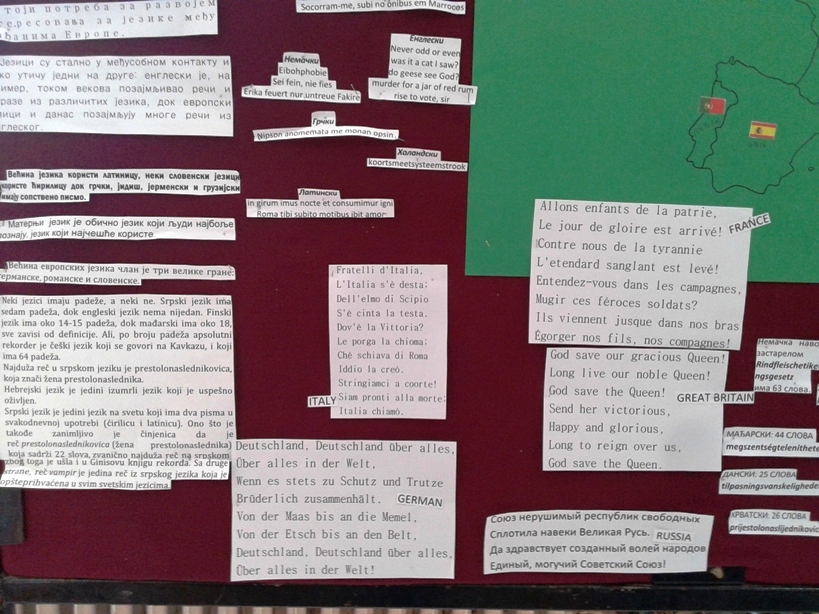 тоји потреба за развојем
ересовања за језике међу
ађанима Европе.
Језици су стално у међусобном контакту и
ко утичу једни на друге: енглески је, на
имер, током векова позајмљивао речи и
разе из различитих језика, док европски
зици и данас позајмљују многе речи из
глеског.
Већина језика користи латиницу, неки словенски језици
користе ћирилицу док грчки, јидиш, јерменски и грузијски
имају сопствено писмо.
Матерњи језик је обично језик који људи најбоље
познају, језик који најчешће користе.
Већина европских језика члан је три велике гране:
германске, романске и словенске.
Neki jezici imaju padeže, a neki ne. Srpski jezik ima
sedam padeža, dok engleski jezik nema nijedan. Finski
jezik ima oko 14-15 padeža, dok mađarski ima oko 18,
sve zavisi od definicije. Ali, po broju padeža apsolutni
rekorder je češki jezik koji se govori na Kavkazu, i koji
ima 64 padeža.
Najduža reč u srpskom jeziku je prestolonaslednikovica,
koja znači žena prestolonaslednika.
Hebrejski jezik je jedini izumrli jezik koji je uspešno
oživljen.
Srpski jezik je jedini jezik na svetu koji ima dva pisma u
svakodnevnoj upotrebi (ćirilicu i latinicu). Ono što je
takođe zanimljivo je činjenica da je
reč prestolonaslednikovica (žena prestolonaslednika)
koja sadrži 22 slova, zvanično najduža reč na srpskom
zbog toga je ušla i u Ginisovu knjigu rekorda. Sa druge
strane, reč vampir je jedina reč iz srpskog jezika koja je
opšteprihvaćena u svim svetskim jezicima.
Socorram-me, subi no ônibus em Marrocos
Немачки
Eibohphobie
Sei fein, nie fies
Erika feuert nur untreue Fakire
Енглески
Never odd or even
was it a cat I saw?
do geese see God?
murder for a jar of red rum
rise to vote, sir
Грчки
Nipson anomemata me monan opsin.
Холандски
koortsmeetsysteemstrook
Латински
in girum imus nocte et consumimur igni
Roma tibi subito motibus ibit amor
Fratelli d'Italia,
L'Italia s'è desta;
Dell'elmo di Scipio
S'è cinta la testa.
Dov'è la Vittoria?
Le porga la chioma;
Ché schiava di Roma
Iddio la creò.
Stringiamci a coorte!
Siam pronti alla morte;
Italia chiamò.
ITALY
Deutschland, Deutschland über alles,
Über alles in der Welt,
Wenn es stets zu Schutz und Trutze
Brüderlich zusammenhält.
GERMAN
Von der Maas bis an die Memel,
Von der Etsch bis an den Belt,
Deutschland, Deutschland über alles,
Über alles in der Welt!
Allons enfants de la patrie,
Le jour de gloire est arrivé!
FRANCE
Contre nous de la tyrannie
L'etendard sanglant est levé!
Entendez-vous dans les campagnes,
Mugir ces féroces soldats?
Ils viennent jusque dans nos bras
Égorger nos fils, nos compagnes!
God save our gracious Queen!
Long live our noble Queen!
God save the Queen!
GREAT BRITAIN
Send her victorious,
Happy and glorious,
Long to reign over us,
God save the Queen.
Союз нерушимый республик свободных
Сплотила навеки Великая Русь.
RUSSIA
Да здравствует созданный волей народов
Единый, могучий Советский Союз!
Немачка
застарелом
Rindfleischetike
ngsgesetz
има 63 слова.
МАЂАРСКИ: 44 СЛОВА
megszentségtelenithete
ДАНСКИ: 25 СЛОВА
tilpasningsvanskelighede
ХРВАТСКИ: 26 СЛОВА
prijestolonaslijednikovic